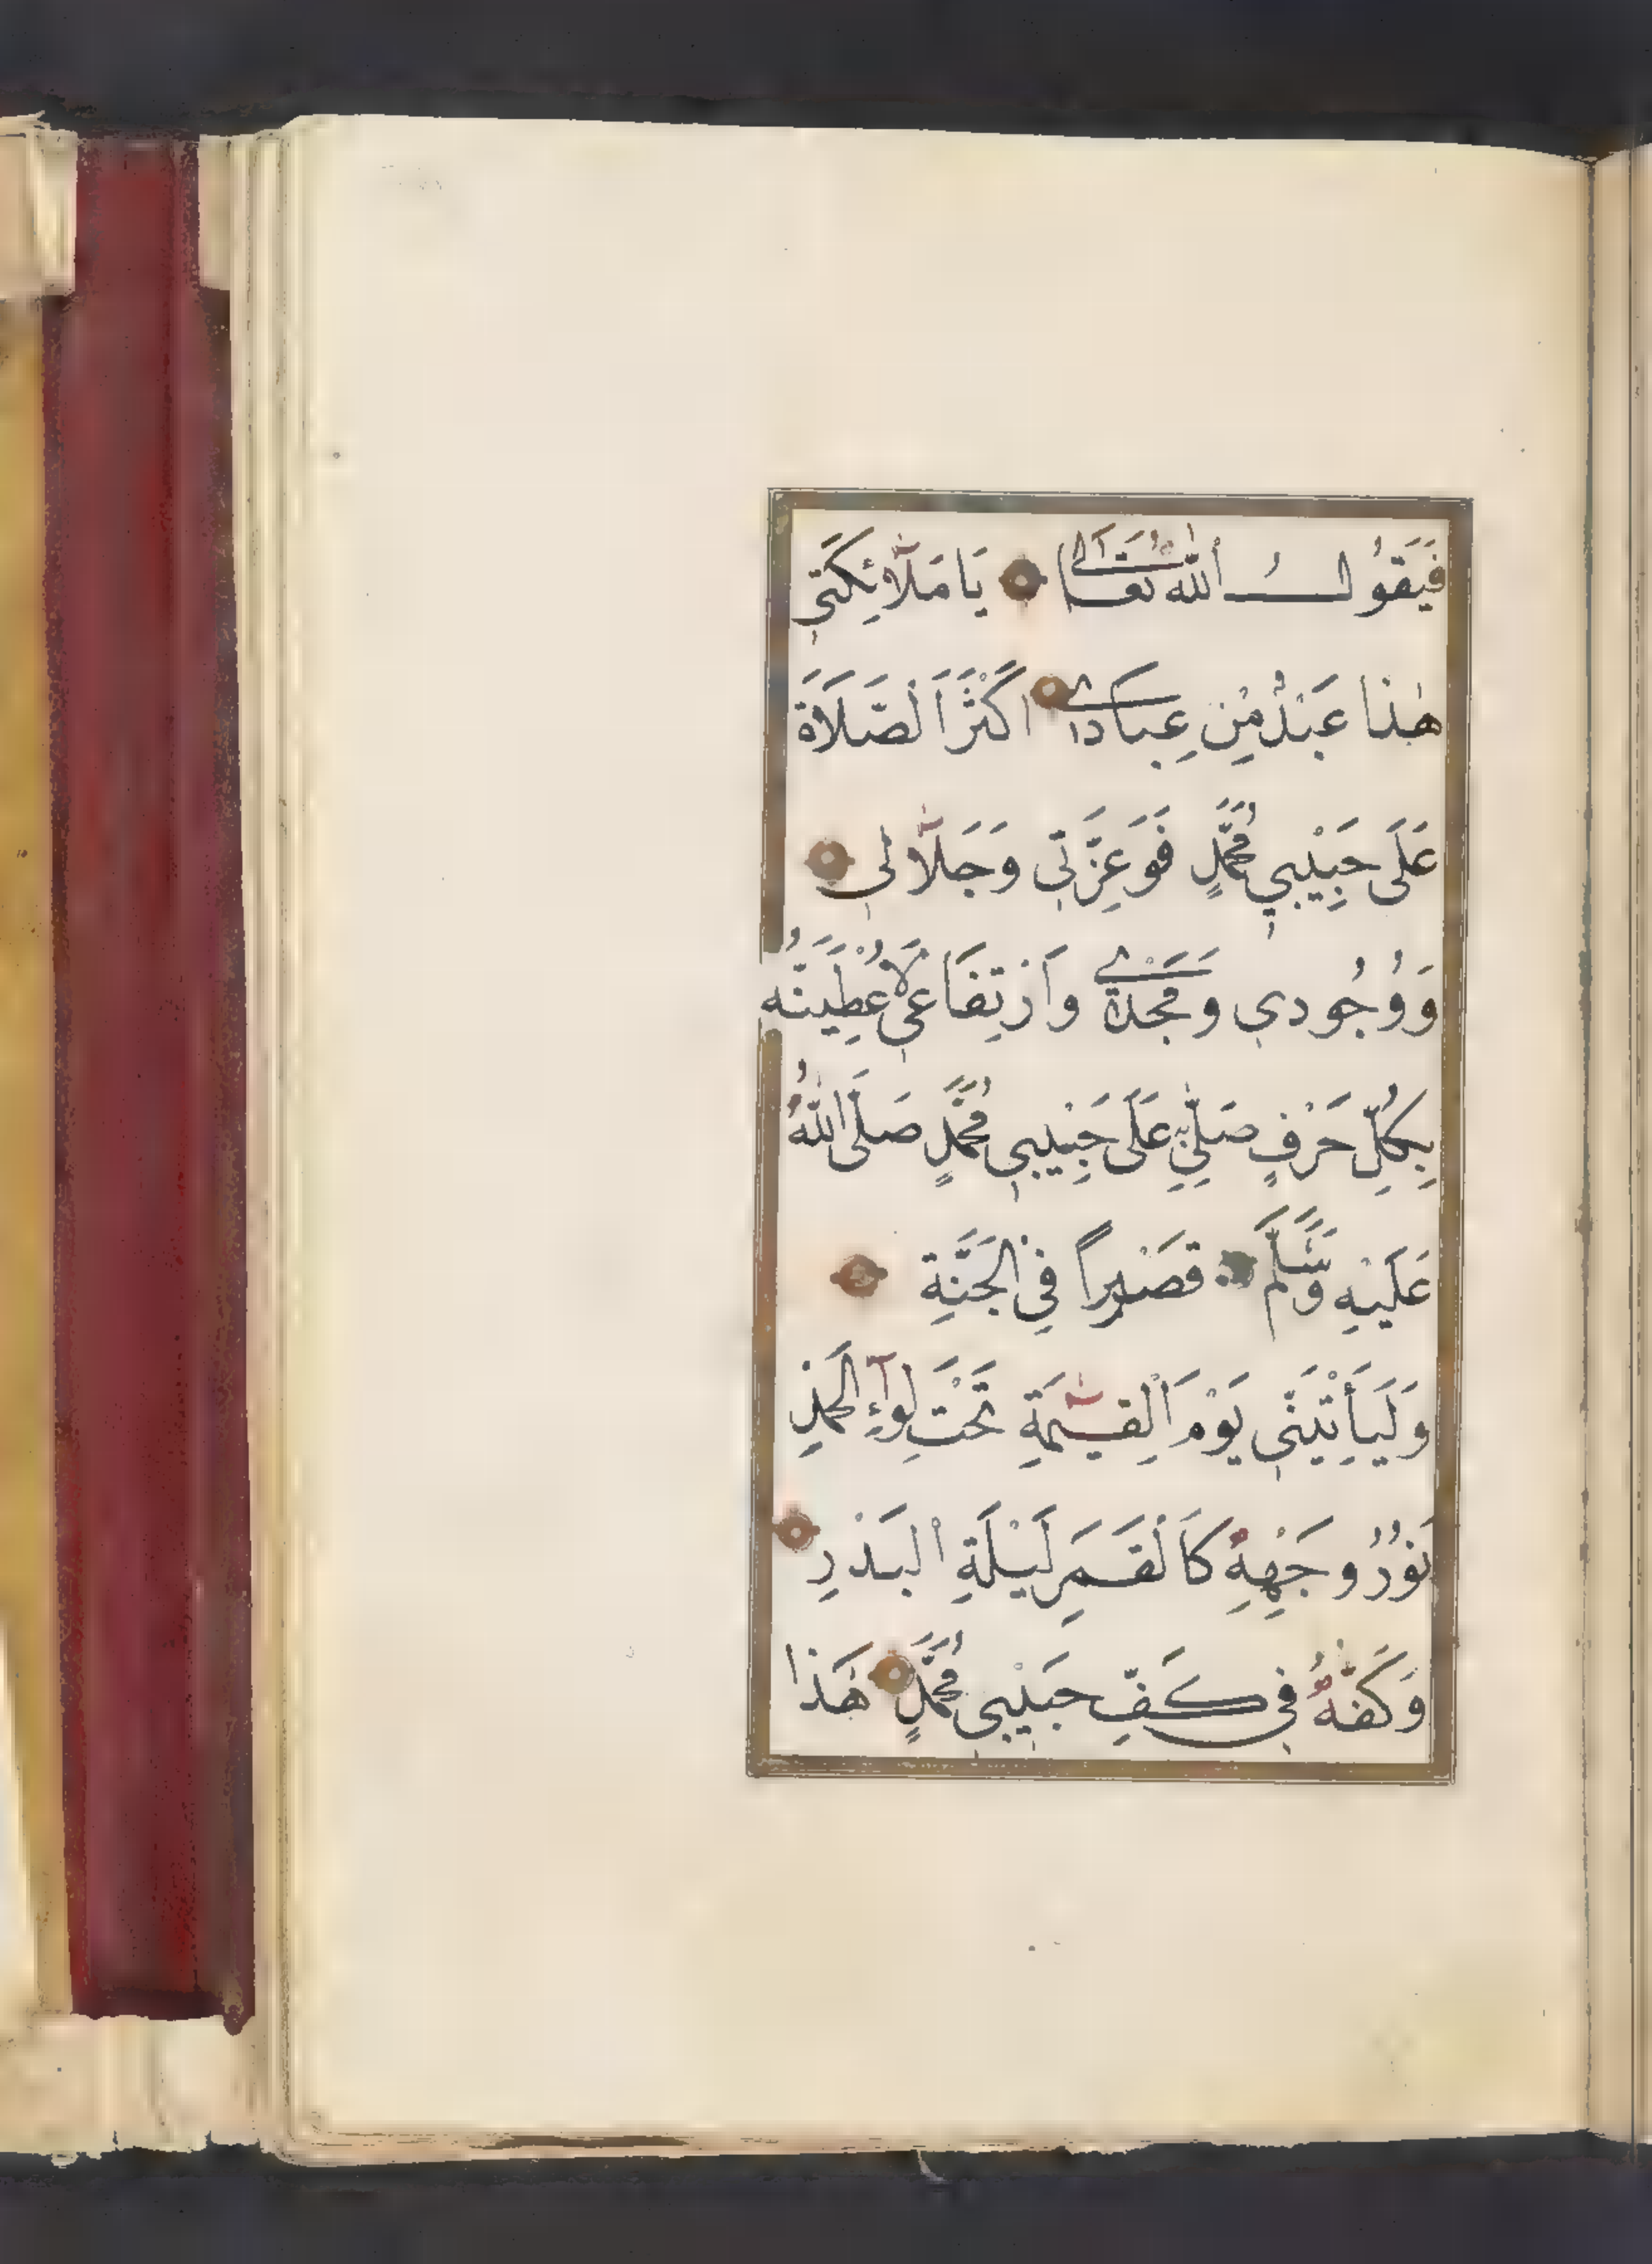 فَيَقُولُ اللّٰهُ تَعَالَى يَا مَلَآئِكَتِي
هٰذَا عَبْدٌ مِنْ عِبَادِي اَكْثَرَ الصَّلَاةَ
عَلَى حَبِيْبِي مُحَمَّدٍ فَوَعِزَّتِي وَجَلَآلِي
وَوُجُودِي وَمَجْدِي وَاَرْتِفَاعِي لَاُعْطِيَنَّهُ
بِكُلِّ حَرْفٍ صَلَّى بِهِ عَلَى حَبِيْبِي مُحَمَّدٍ صَلَّى اللّٰهُ
عَلَيْهِ وَسَلَّمَ قَصْيراً فِي الْجَنَّةِ
وَلَيَأْتِيَنِّي يَوْمَ الْقِيٰمَةِ تَحْتَ لِوَآءِ الْحَمْدِ
نُوْرُ وَجْهِهِ كَالْقَمَرِ لَيْلَةِ الْبَدْرِ
وَكَفُّهُ فِي كَفِّ حَبِيْبِي مُحَمَّدٍ هٰذَا